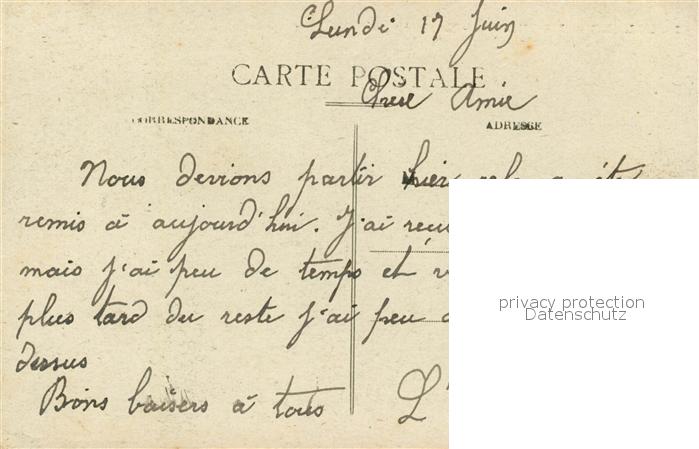 Lundi 17 Juin
CARTE POSTALE
Chere Amie
CORRESPONDANCE
ADRESSE
Nous devions partir hier cela a été
remis à aujourd'hui. J'ai reçu
mais j'ai peu de temps et
plus tard du reste j'ai peu
dessus
Bons baisers à tous
privacy protection
Datenschutz